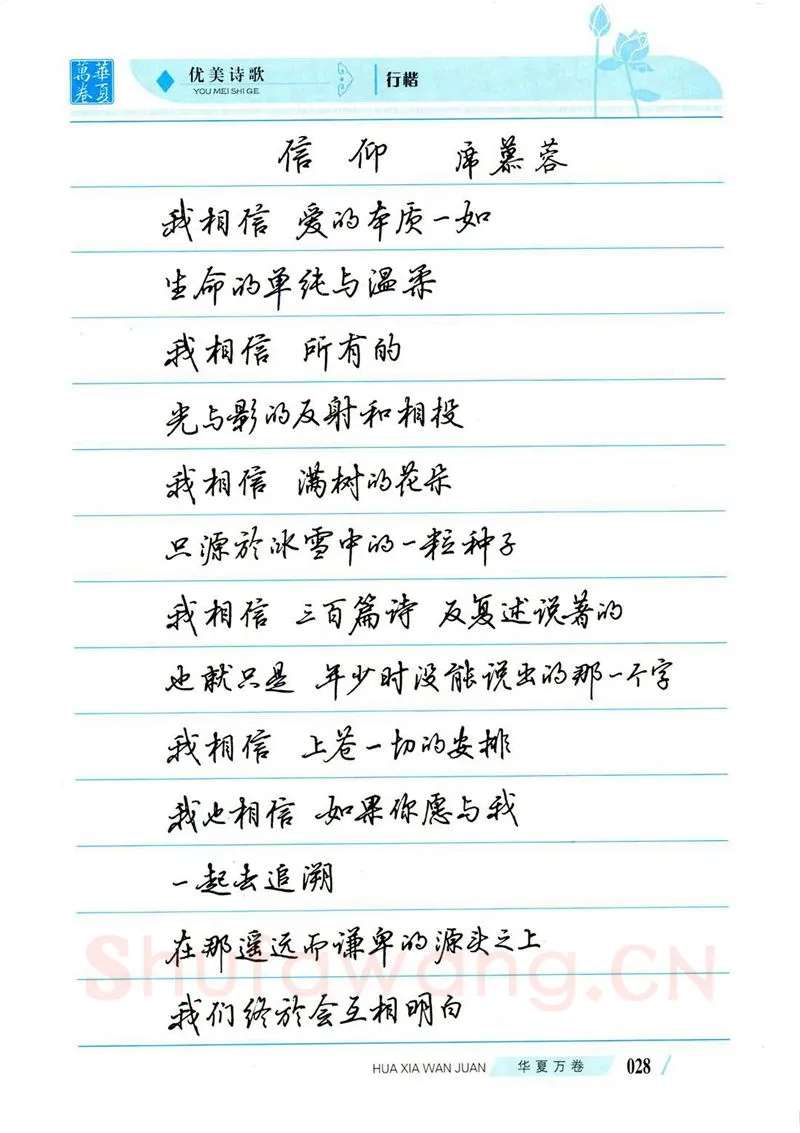 華夏萬卷
优美诗歌
YOU MEI SHI GE
行楷
信仰 席慕蓉
我相信 爱的本质一如
生命的单纯与温柔
我相信 所有的
光与影的反射和相投
我相信 满树的花朵
只源於冰雪中的一粒种子
我相信 三百篇诗 反复述说著的
也就只是 年少时没能说出的那一个字
我相信 上苍一切的安排
我也相信 如果你愿与我
一起去追溯
在那遥远而谦卑的源头之上
我们终於会互相明白
Shufawang.CN
HUA XIA WAN JUAN
华夏万卷
028